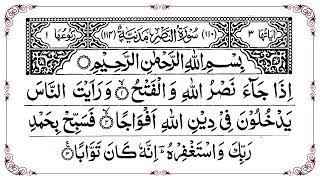 اٰيَاتُهَا ٣ (١١٠) سُوْرَةُ النَّصْرِ مَدَنِيَّةٌ (١١٤) رُكُوْعُهَا ١
بِسْمِ اللهِ الرَّحْمٰنِ الرَّحِيْمِ
اِذَا جَآءَ نَصْرُ اللهِ وَ الْفَتْحُ ۙ١ وَ رَاَيْتَ النَّاسَ
يَدْخُلُوْنَ فِيْ دِيْنِ اللهِ اَفْوَاجًا ۙ٢ فَسَبِّحْ بِحَمْدِ
رَبِّكَ وَ اسْتَغْفِرْهُ ؕ اِنَّهٗ كَانَ تَوَّابًا ٣